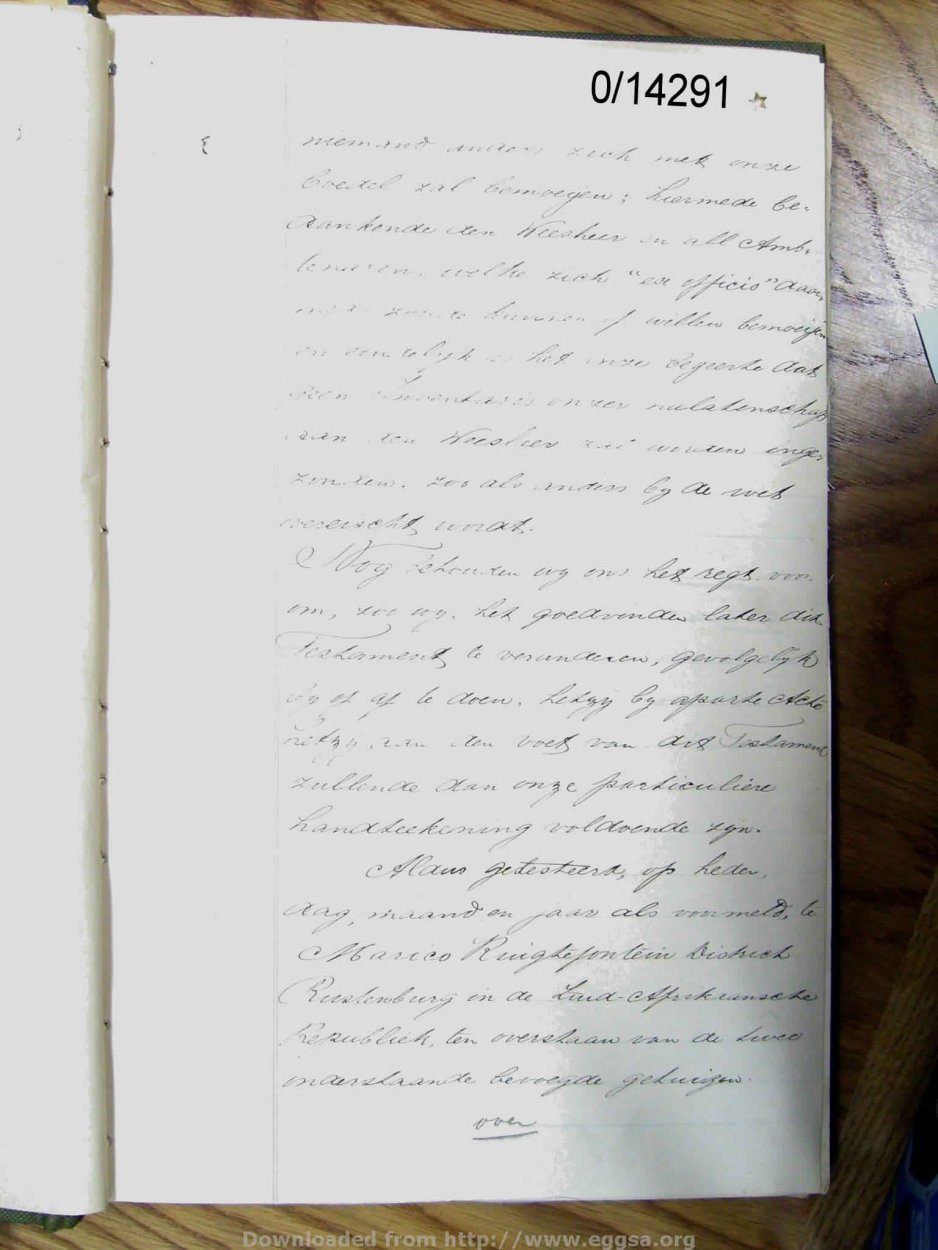 0/14291
niemand anders zich met onze
boedel zal bemoeijen; hiermede be-
dankende den Weesheer en all Amb-
tenaren, welke zich "ex officio" daar
mede zoude kunnen of willen bemoeijen
en eindelijk is het onze begeerte dat
geen Inventaris onzer nalatenschap
aan den Weesheer zal worden inge-
zonden, zoo als anders by de wet
vereischt wordt.
Nog behouden wy ons het regt voor
om, zoo wy het goedvinden later dit
Testament te veranderen, gevolgelyk
by of af te doen, hetzy by aparte Acte
hetzy aan den voet van dit Testament
zullende dan onze particuliere
handteekening voldoende zyn.
Aldus getesteerd, op heden,
dag, maand en jaar als voormeld, te
Marico Ruigtefontein District
Rustenburg in de Zuid-Afrikaansche
Republiek, ten overstaan van de twee
onderstaande bevoegde getuigen.
over
Downloaded from http://www.eggsa.org